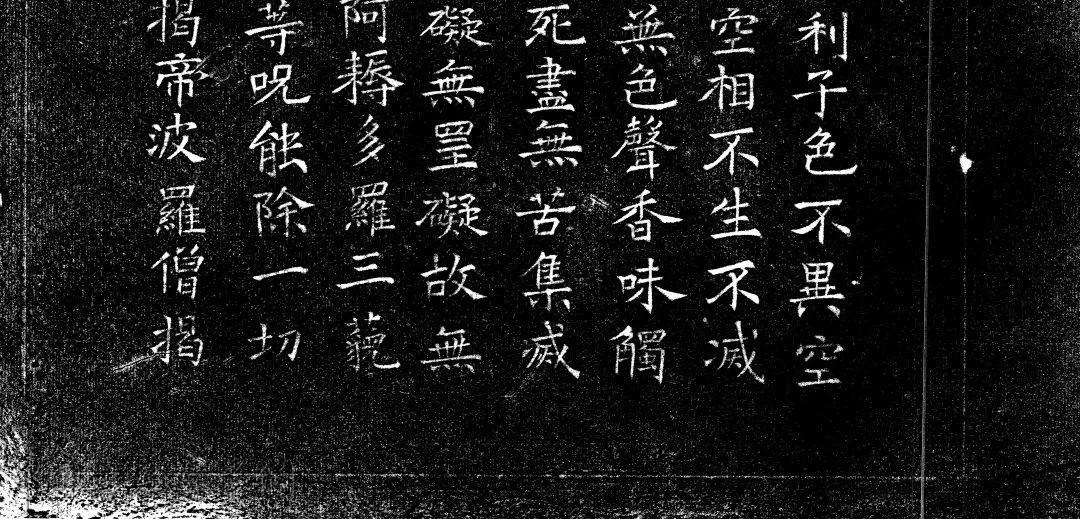 利子色不異空
空相不生不滅
無色聲香味觸
死盡無苦集滅
礙無罣礙故無
阿耨多羅三藐
等呪能除一切
揭帝波羅僧揭